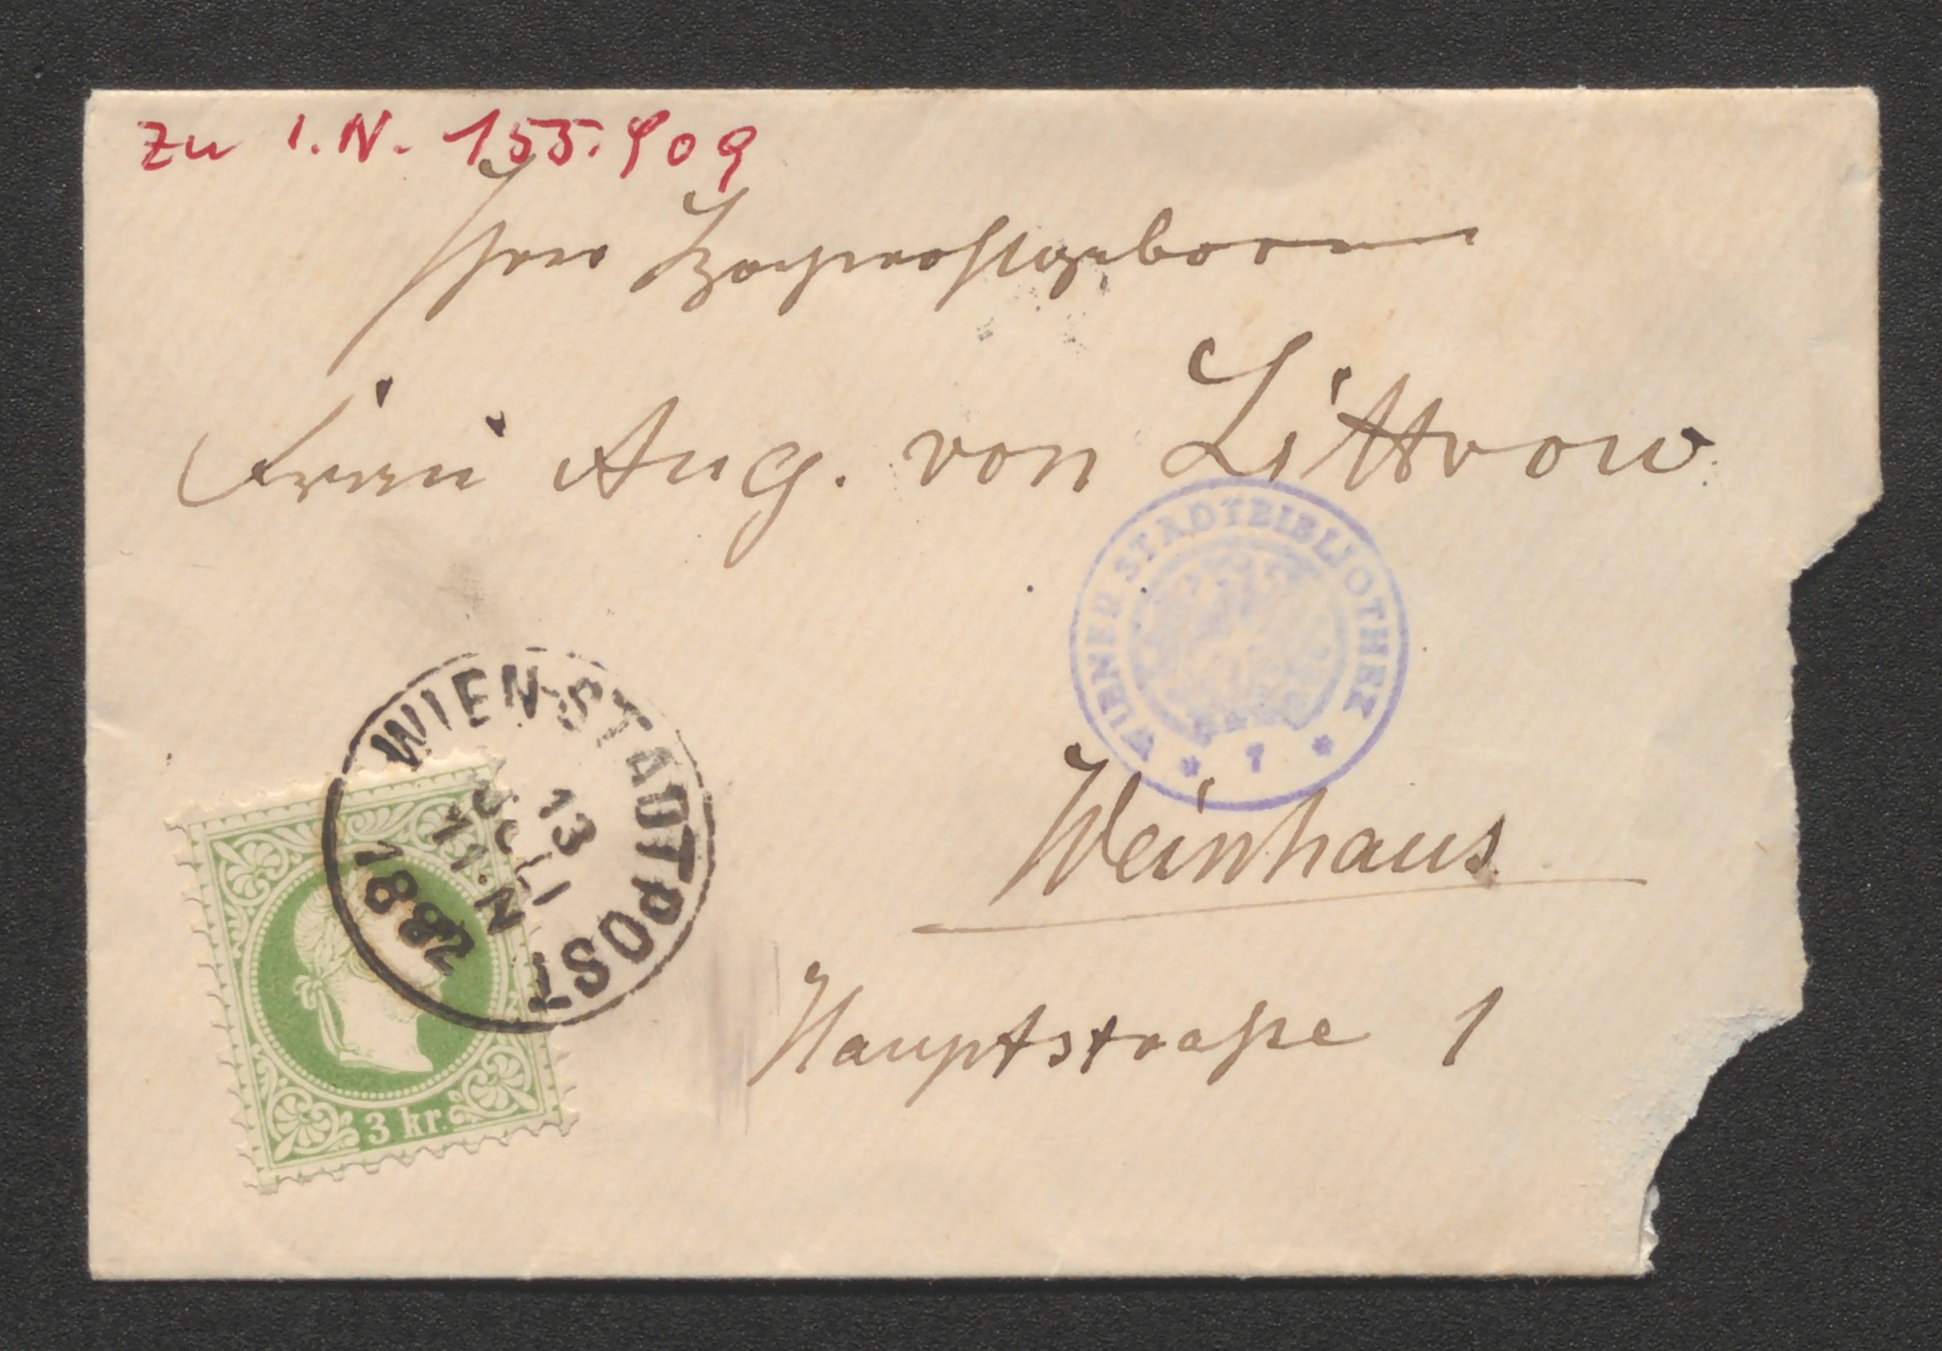 Zu I.N. 155.909
Ihrer Hochwohlgeboren
Frau Aug. von Littrow
WIENER STADTBIBLIOTHEK
* 7 *
Weinhaus
WIEN STADTPOST
13
JULI
11.N
881
3 kr.
Hauptstraße 1